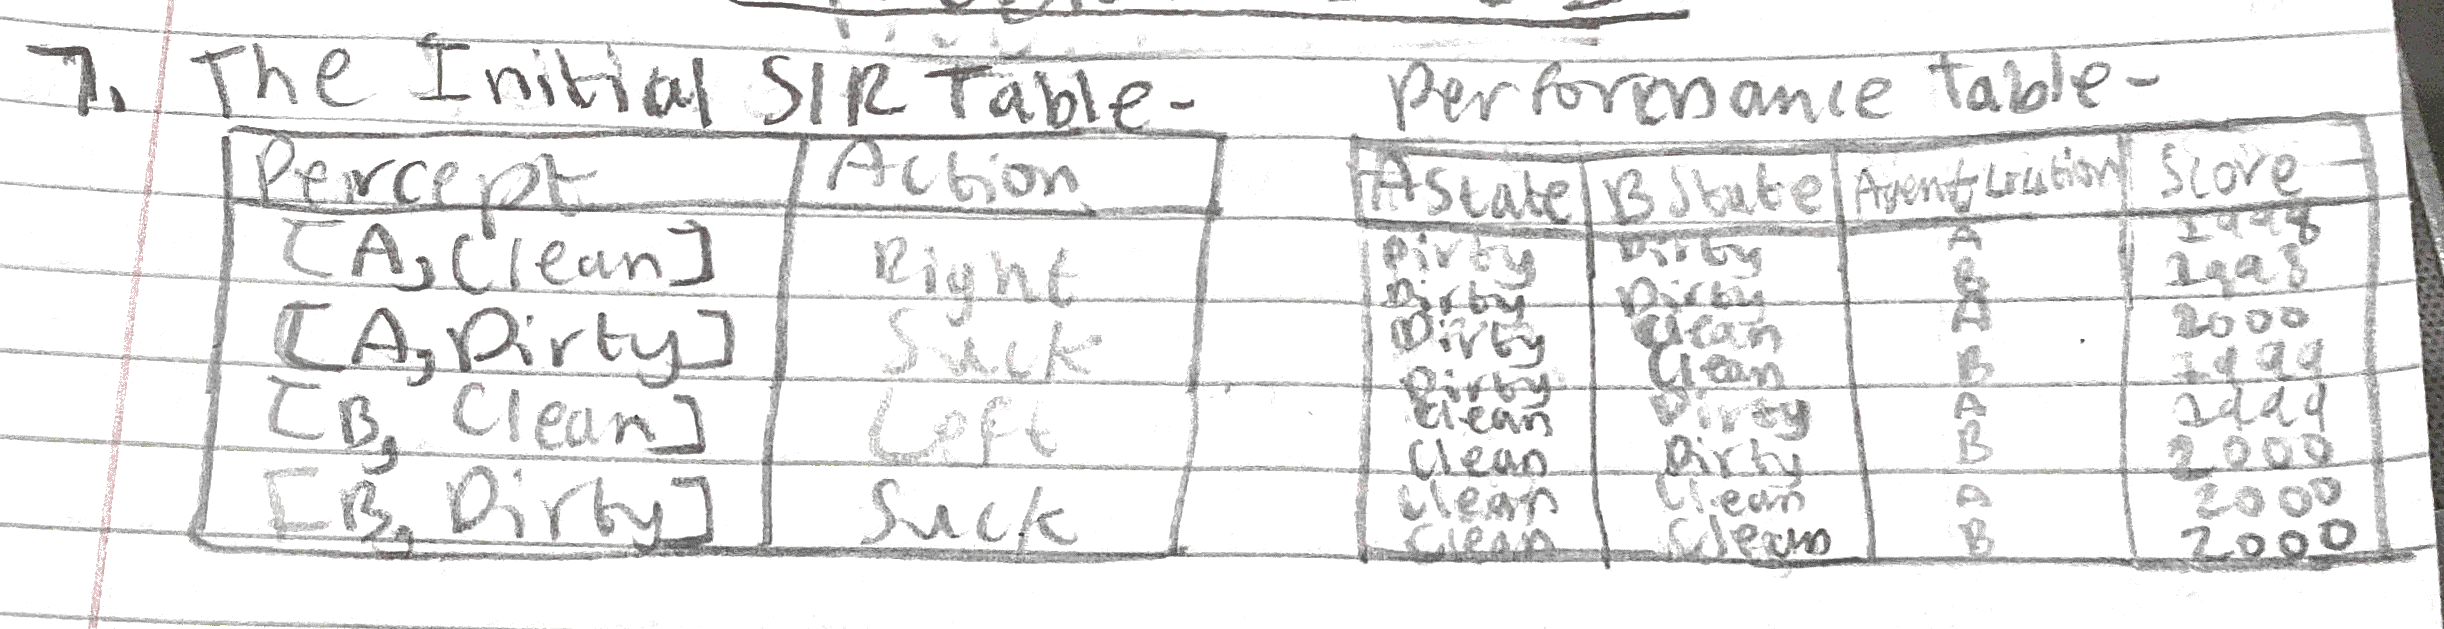 7. The Initial SIR Table-
Percept Action
[A, Clean] Right
[A, Dirty] Suck
[B, Clean] Left
[B, Dirty] Suck
Performance Table-
A State B State Agent Location Score
Dirty Dirty A 1998
Dirty Dirty B 1998
Dirty Clean A 2000
Dirty Clean B 1999
Clean Dirty A 1999
Clean Dirty B 2000
Clean Clean A 2000
Clean Clean B 2000